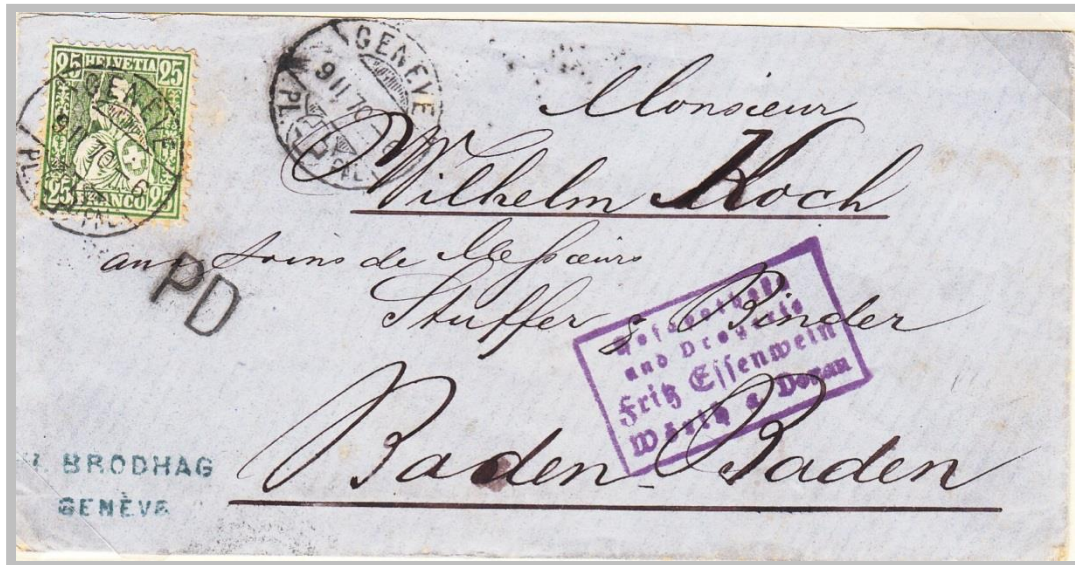 25 HELVETIA 25
25 FRANCO 25
GENÈVE
9 II 70
GENÈVE
9 II 70
Monsieur
Wilhelm Koch
aux soins de Messieurs
Stuffer & Binder
Baden-Baden
PD
und Drogerie
Fritz Essenwein
Wörth a Donau
BRODHAG
GENÈVE